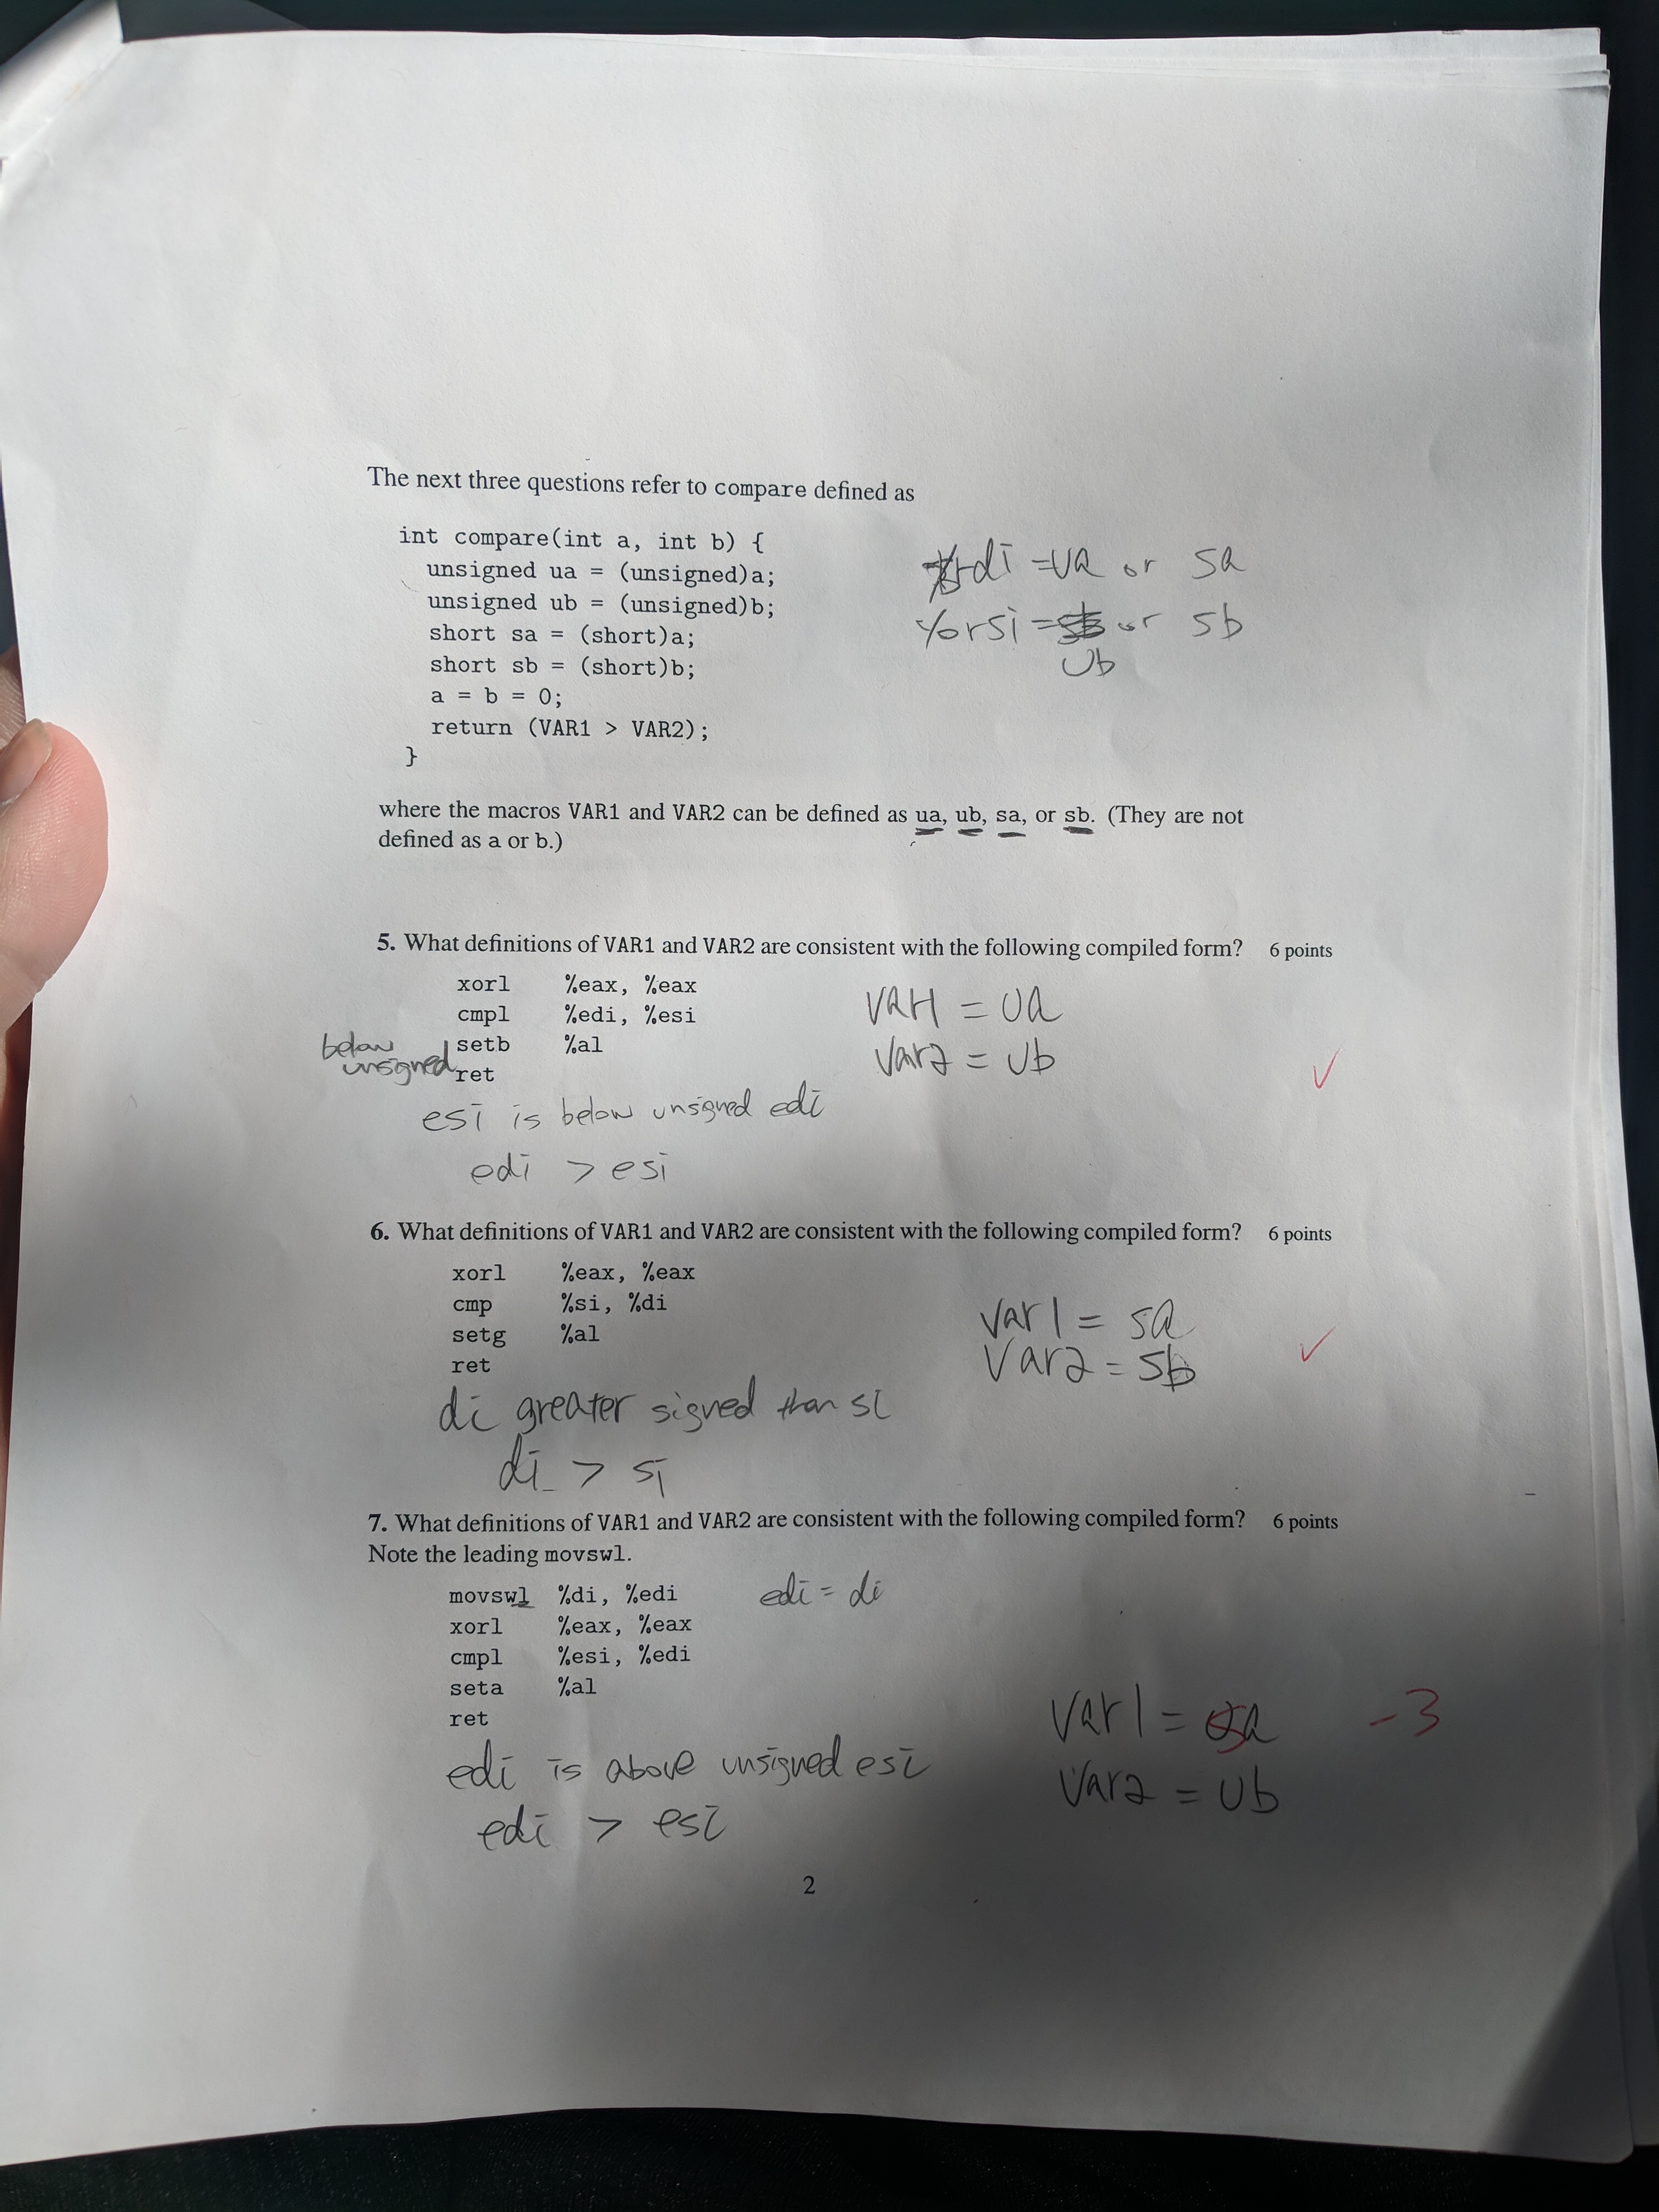 The next three questions refer to compare defined as
int compare(int a, int b) {
unsigned ua = (unsigned)a;
unsigned ub = (unsigned)b;
short sa = (short)a;
short sb = (short)b;
a = b = 0;
return (VAR1 > VAR2);
}
di = ua or sa
si = or sb
ub
where the macros VAR1 and VAR2 can be defined as ua, ub, sa, or sb. (They are not
defined as a or b.)
5. What definitions of VAR1 and VAR2 are consistent with the following compiled form? 6 points
xorl %eax, %eax
cmpl %edi, %esi
setb %al
ret
below
unsigned
var1 = ua
var2 = ub
✓
esi is below unsigned edi
edi > esi
6. What definitions of VAR1 and VAR2 are consistent with the following compiled form? 6 points
xorl %eax, %eax
cmp %si, %di
setg %al
ret
var1 = sa
var2 = sb
✓
di greater signed than si
di > si
7. What definitions of VAR1 and VAR2 are consistent with the following compiled form? 6 points
Note the leading movswl.
movswl %di, %edi edi = di
xorl %eax, %eax
cmpl %esi, %edi
seta %al
ret
var1 = sa -3
var2 = ub
edi is above unsigned esi
edi > esi
2